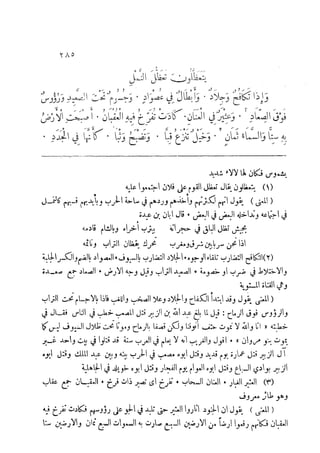 ٢٨٥
يتعظلون تعظل النمل
وإذا تكافح وجلاد . وأبطال في عصواد . وجسوم تحت الصعيد ورؤوس
فوق الصعاد . وعثير في العنان . كادت تفرخ فيه العقبان . أصبحت الأرض
به ستا والسماء ثمان . وخيل تنزع قبا . وتصبح وثبا . كأنها في الجدد .
بشموس فكان لها لألاء شديد
(١) يتعظلون يقال تعظل القوم على فلان اجتمعوا عليه
(المعنى) يقول انهم لكثرتهم وأخذهم وردهم في ساحة الحرب وبأيديهم قسيهم كالنمل
في اجتماعه وتداخله البعض في البعض . قال ابان بن عبدة
بجيش تضل البلق في حجراته بيثرب أخراه وبالشام قادمه
اذا نحن سرنا بين شرق ومغرب تحرك يقظان التراب ونائمه
(٢) التكافح التضارب تلقاء الوجوه . الجلاد التضارب بالسيوف . العصواد بالضم والكسر الجلبة
والاختلاط في ضرب او خصومة . الصعيد التراب وقيل وجه الارض . الصعاد جمع صعدة
وهي القناة المستوية
(المعنى) يقول وقد ابتدأ الكفاح والجلاد وعلا الصخب والقف فاذا بالاجسام تحت التراب
والرؤس فوق الرماح : قيل لما بلغ عبد الله بن الزبير قتل المصعب خطب في الناس فقال في
خطبته . انا والله لا نموت حتف أنوفنا ولكن قعصا بالرماح وموتا تحت ظلال السيوف ليس كما
يموت بنو مروان . افول والغريب أنه لا يعلم في العرب ستة قد قتلوا في بيت واحد غير
آل الزبير قتل عمارة يوم قديد وقتل ابوه مصعب في الحرب بينه وبين عبد الملك وقتل ابوه
الزبير بوادي السباع وقتل ابوه العوام يوم الفجار وقتل ابوه خويلد في الجاهلية
(٣) العثير الغبار . العنان السحاب . تفرخ اى تصير ذات فرخ . العقبان جمع عقاب
وهو طائر معروف
(المعنى) يقول ان الجنود اثاروا العثير حتى تلبد في الجو على رؤوسهم فكادت تفرخ فيه
العقبان فكانهم رفعوا ارضاً من الارضين السبع صارت به السموات السبع ثمان والارضين ستا